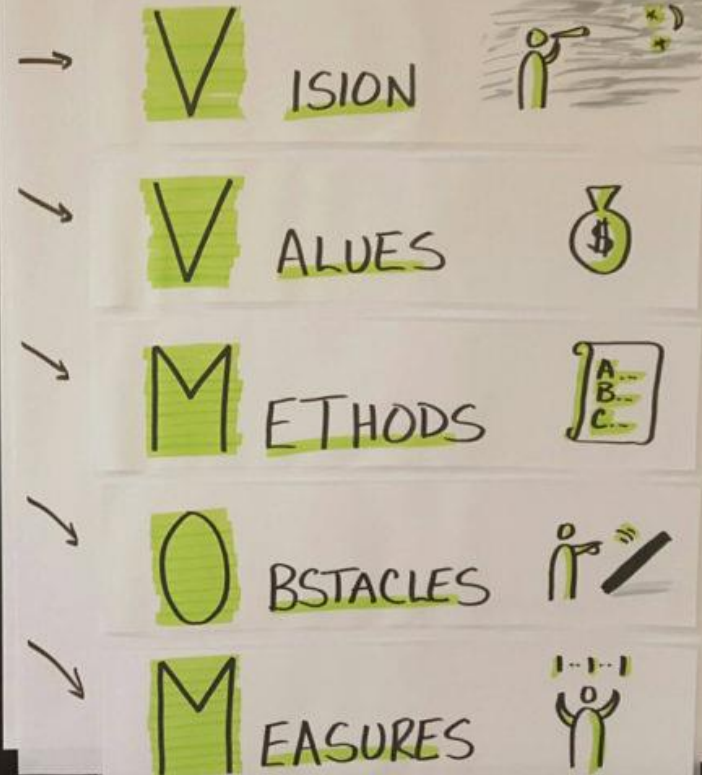 VISION
VALUES
$
METHODS
A...
B...
C...
OBSTACLES
MEASURES